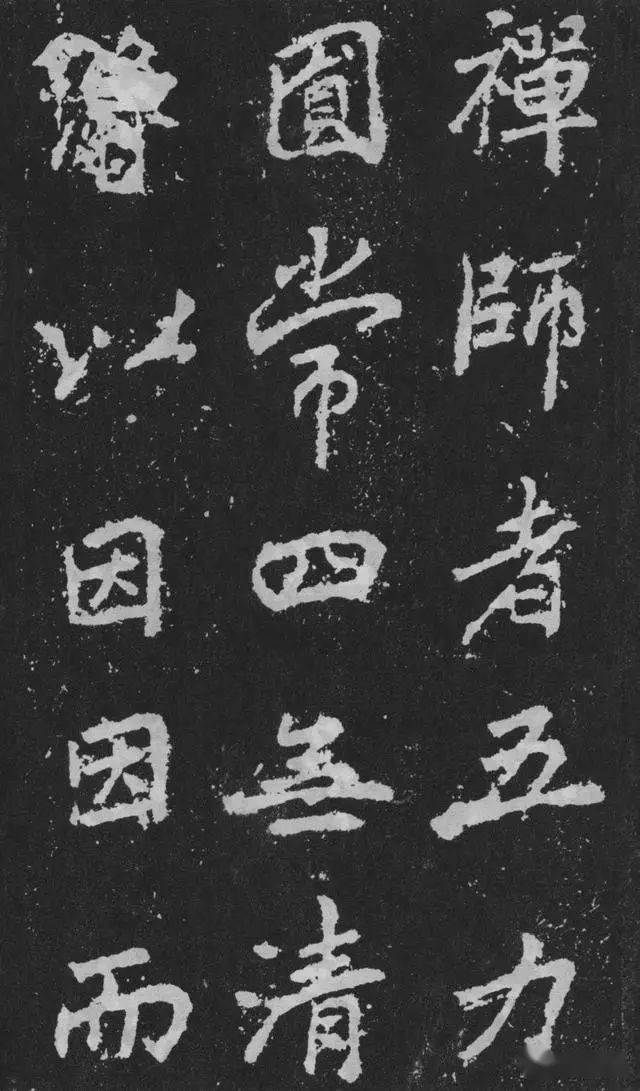 禪師者五力
圓常四無清
以因因而